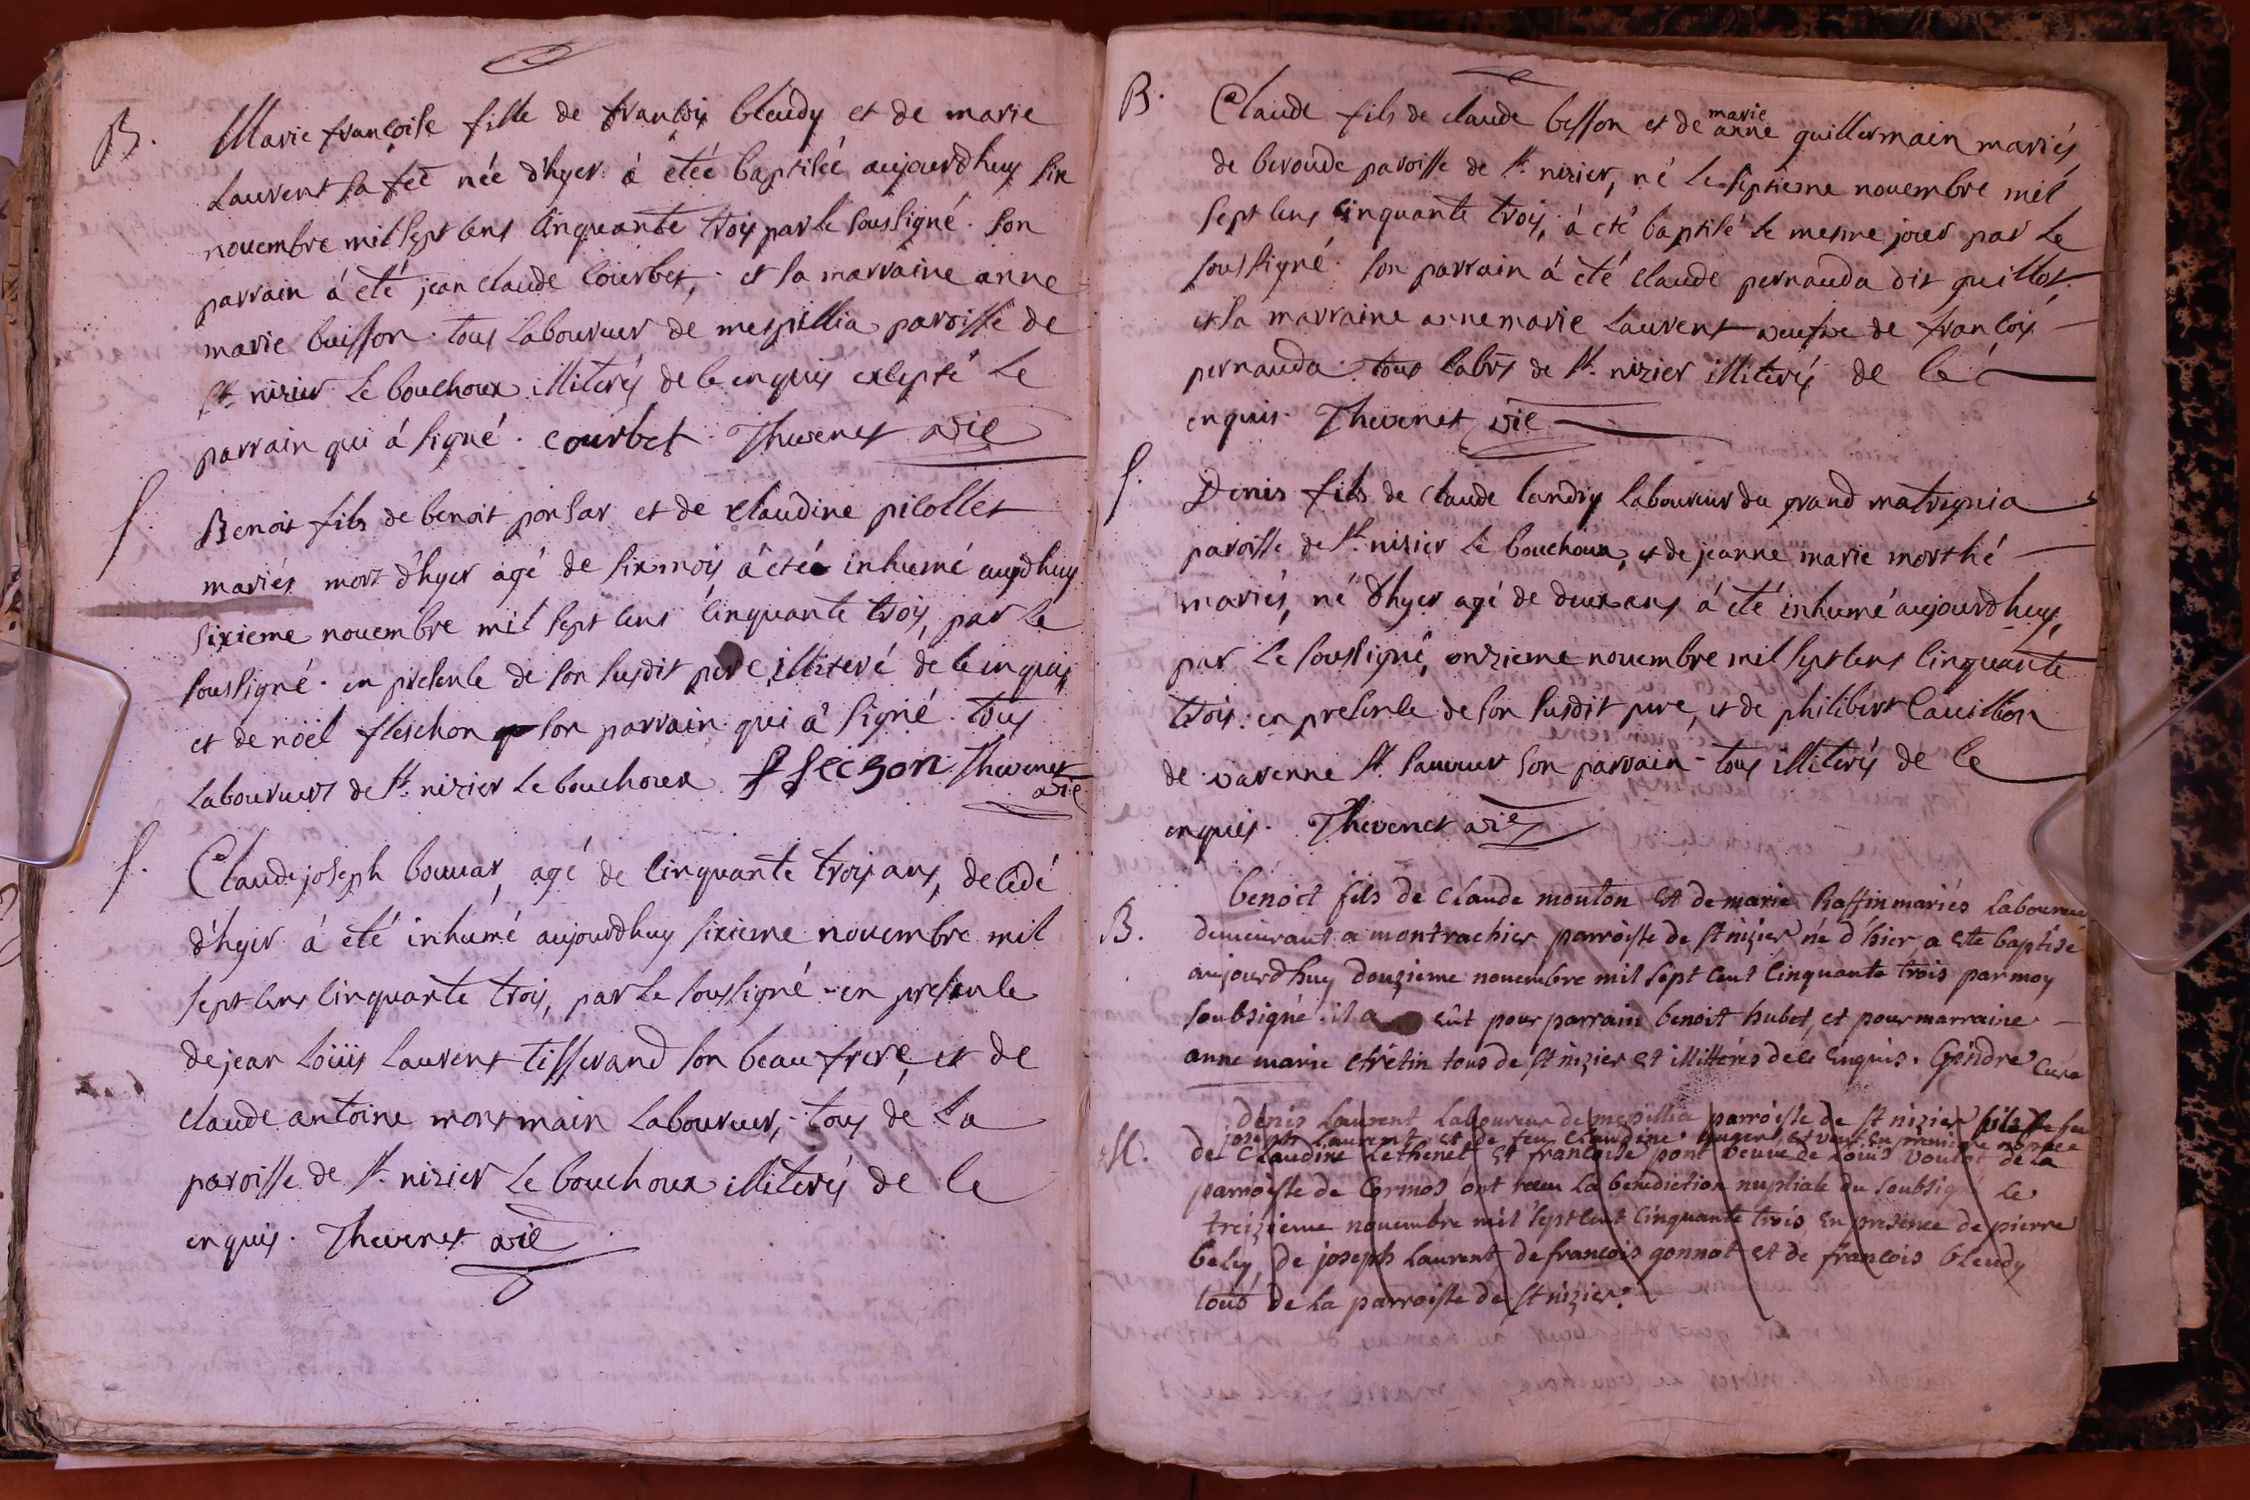 B. Marie françoise fille de françois bleudy et de marie
Laurent sa fee née d'hyer à étée baptisée aujourdhuy six
novembre mil sept cens cinquante trois par le soussigné. son
parrain á été jean claude Courbet, et sa marraine anne
marie buisson. tous laboureur de mespillia paroisse de
st nizier le bouchoux illiterés de ce enquis excepté le
parrain qui á signé. courbet. Thevenet vic
f. Benoit fils de benoit ponsar et de claudine picollet
mariés mort d'hyer agé de six mois á étée inhumé aujdhuy
sixieme novembre mil sept cens cinquante trois, par le
soussigné. en presence de son susdit pere illiteré de ce enquis
et de nöel flechon son parrain qui á signé. tous
laboureurs de st nizier le bouchoux. Thevenet
vic
f. Claude joseph bouvar, agé de cinquante trois ans, decedé
d'hyer á été inhumé aujourdhuy sixieme novembre mil
sept cens cinquante trois, par le soussigné. en presence
de jean Loüis Laurent tisserand son beau frere, et de
claude antoine montmain laboureur, tous de la
paroisse de st nizier le bouchoux illiterés de ce
enquis. Thevenet vic
B. Claude fils de claude besson et de marie anne guillermain mariés
de beroude paroisse de st nizier, né le septieme novembre mil
sept cens cinquante trois, á été baptisé le mesme jour par le
soussigné. son parrain á été claude pernauda dit guillot
et sa marraine anne marie Laurent veufve de françois
pernauda. tous labrs de st nizier illiterés de ce
enquis. Thevenet vic
f. Denis fils de claude landry laboureur du grand matrignia
paroisse de st nizier le bouchoux, et de jeanne marie morthié
mariés, né d'hyer agé de deux ans á été inhumé aujourdhuy,
par le soussigné, onzieme novembre mil sept cens cinquante
trois. en presence de son susdit pere, et de philibert Cauillion
de varenne st sauveur son parrain. tous illiterés de ce
enquis. Thevenet vic
benoit fils de Claude mouton et de marie Raffin mariés Laboureur
B. demeurant a montrachier parroiste de st nizier né d'hier a este baptisé
aujourdhuy douzieme novembre mil sept cent cinquante trois par moy
soubsigné. il a eût pour parrain benoit hubet, et pour marraine
anne marie chrétin tous de st nizier et illitterés de ce Enquis. Gindre Curé
denis Laurent Laboureur de mespillia parroiste de st nizier fils de feu
joseph Laurent et de feu Claudine et veuf en premiere nopces
M. de Claudine Lethenet et francoise pont veuve de Louis voulot de la
parroiste de Cormos, ónt recu la benediction nuptiale du soubsigné le
treizieme novembre mil sept cent cinquante trois En presence de pierre
bely, de joseph Laurent de francois gonnot et de françois bleudy
tous de la parroiste de st nizier.